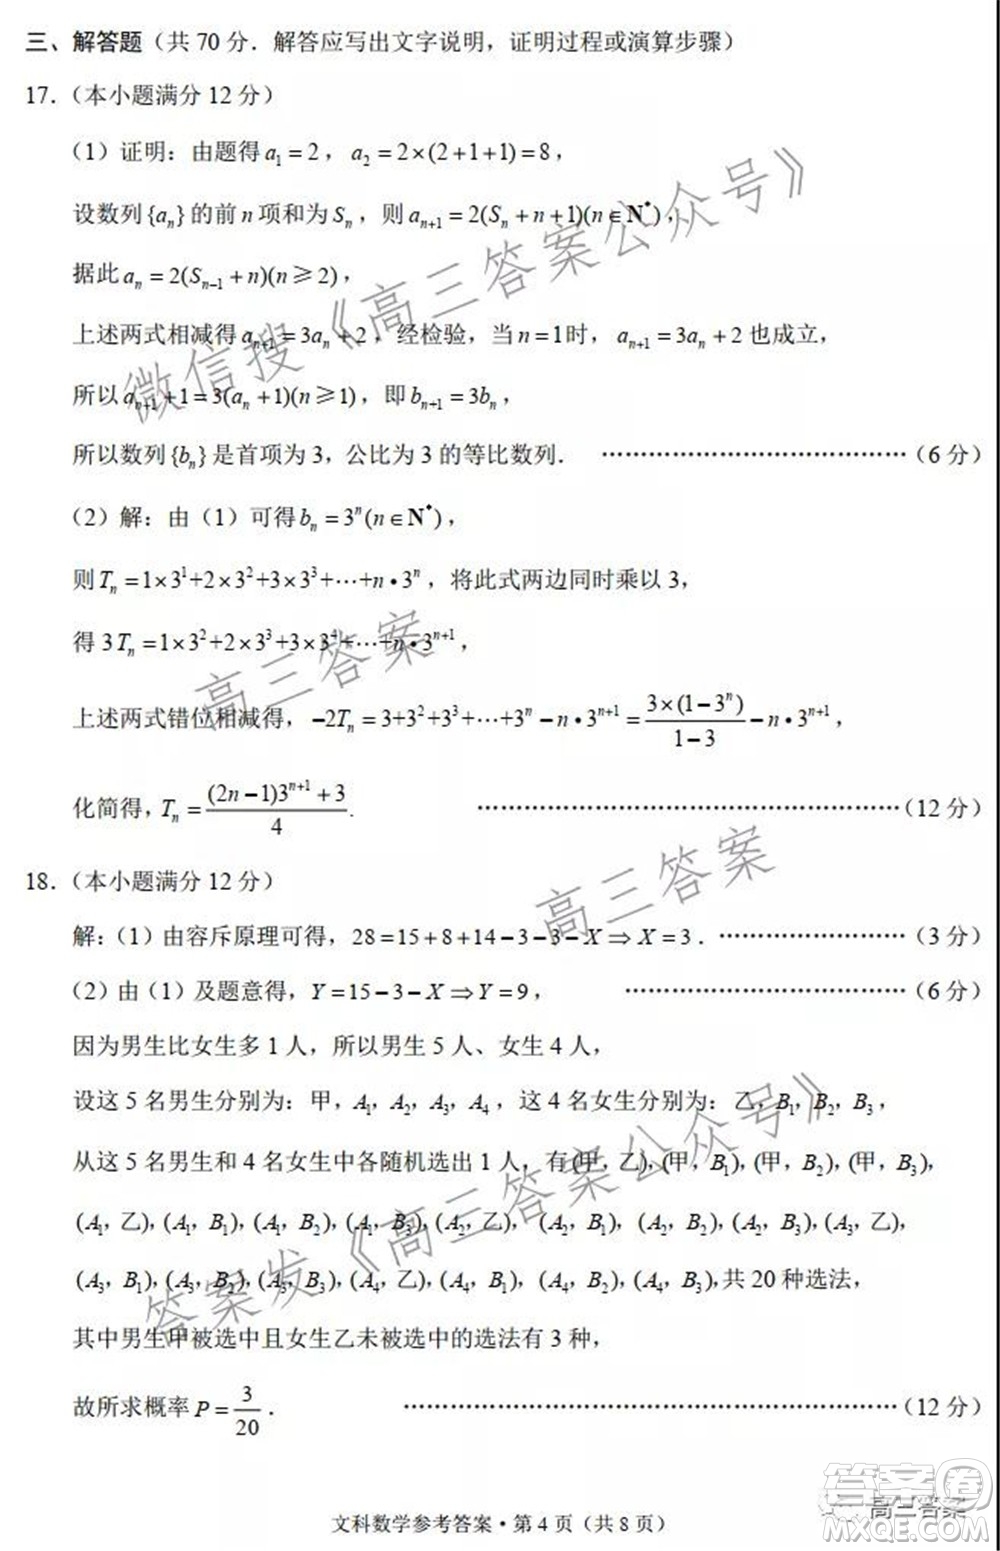 三、解答题（共 70 分．解答应写出文字说明，证明过程或演算步骤）
17．（本小题满分 12 分）
（1）证明：由题得 a₁=2， a₂=2×(2+1+1)=8，
设数列{aₙ}的前 n 项和为 Sₙ，则 aₙ₊₁=2(Sₙ+n+1)(n∈N*)，
据此 aₙ=2(Sₙ₋₁+n)(n≥2)，
上述两式相减得 aₙ₊₁=3aₙ+2，经检验，当 n=1时， aₙ₊₁=3aₙ+2 也成立，
所以 aₙ₊₁+1=3(aₙ+1)(n≥1)，即 bₙ₊₁=3bₙ，
所以数列{bₙ}是首项为 3，公比为 3 的等比数列． ……………………………………（6 分）
（2）解：由（1）可得 bₙ=3ⁿ(n∈N*)，
则 Tₙ=1×3¹+2×3²+3×3³+⋯+n•3ⁿ，将此式两边同时乘以 3，
得 3Tₙ=1×3²+2×3³+3×3⁴+⋯+n•3ⁿ⁺¹，
上述两式错位相减得，−2Tₙ=3+3²+3³+⋯+3ⁿ−n•3ⁿ⁺¹=3×(1−3ⁿ)/(1−3)−n•3ⁿ⁺¹，
化简得，Tₙ=((2n−1)3ⁿ⁺¹+3)/4. ……………………………………………………（12 分）
18．（本小题满分 12 分）
解：（1）由容斥原理可得，28=15+8+14−3−3−X⇒X=3．………………………（3 分）
（2）由（1）及题意得，Y=15−3−X⇒Y=9， ……………………………………（6 分）
因为男生比女生多 1 人，所以男生 5 人、女生 4 人，
设这 5 名男生分别为：甲，A₁，A₂，A₃，A₄，这 4 名女生分别为：乙，B₁，B₂，B₃，
从这 5 名男生和 4 名女生中各随机选出 1 人，有(甲，乙)，(甲，B₁)，(甲，B₂)，(甲，B₃)，
(A₁，乙)，(A₁，B₁)，(A₁，B₂)，(A₁，B₃)，(A₂，乙)， (A₂，B₁)， (A₂，B₂)，(A₂，B₃)，(A₃，乙)，
(A₃，B₁)，(A₃，B₂)，(A₃，B₃)，(A₄，乙)，(A₄，B₁)，(A₄，B₂)，(A₄，B₃)，共 20 种选法，
其中男生甲被选中且女生乙未被选中的选法有 3 种，
故所求概率 P=3/20． ……………………………………………………………（12 分）
文科数学参考答案・第 4 页（共 8 页）
微信搜《高三答案公众号》
高三答案
高三答案
答案发《高三答案公众号》
高三答案
答案圈
MXQE.COM